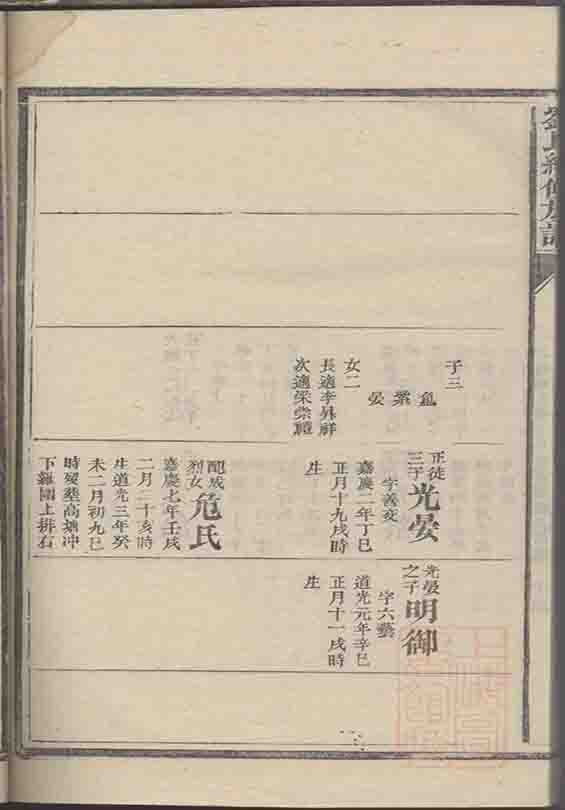 劉氏續修族譜
子三
𩇕 霖 晏
女二
長適李昇祥
次適梁崇
正徒
三子
光晏
字善交
嘉慶二年丁巳
正月十九戌時
生
配咸
烈女
危氏
嘉慶七年壬戌
二月二十亥時
生道光三年癸
未二月初九巳
時歿塟高塘冲
下羅圍上排石
光晏
之子
明御
字六藝
道光元年辛巳
正月十一戌時
生